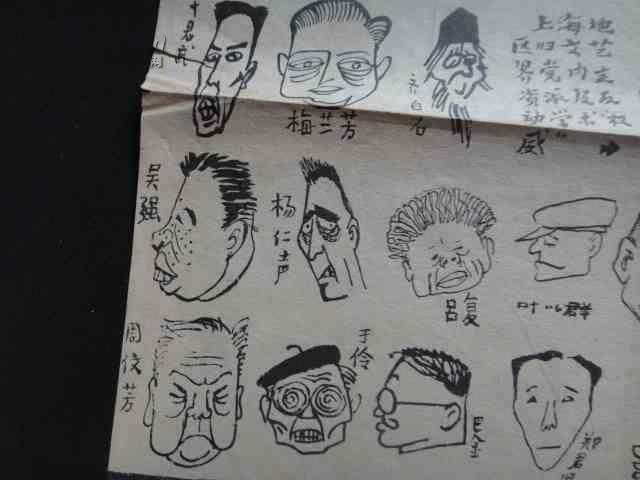 君
梅兰芳
齐白石
上海地
区旧文艺
界党内走
资派反
动学术权
威
吴强
杨仁声
吕复
叶以群
周信芳
于伶
巴金
郑君